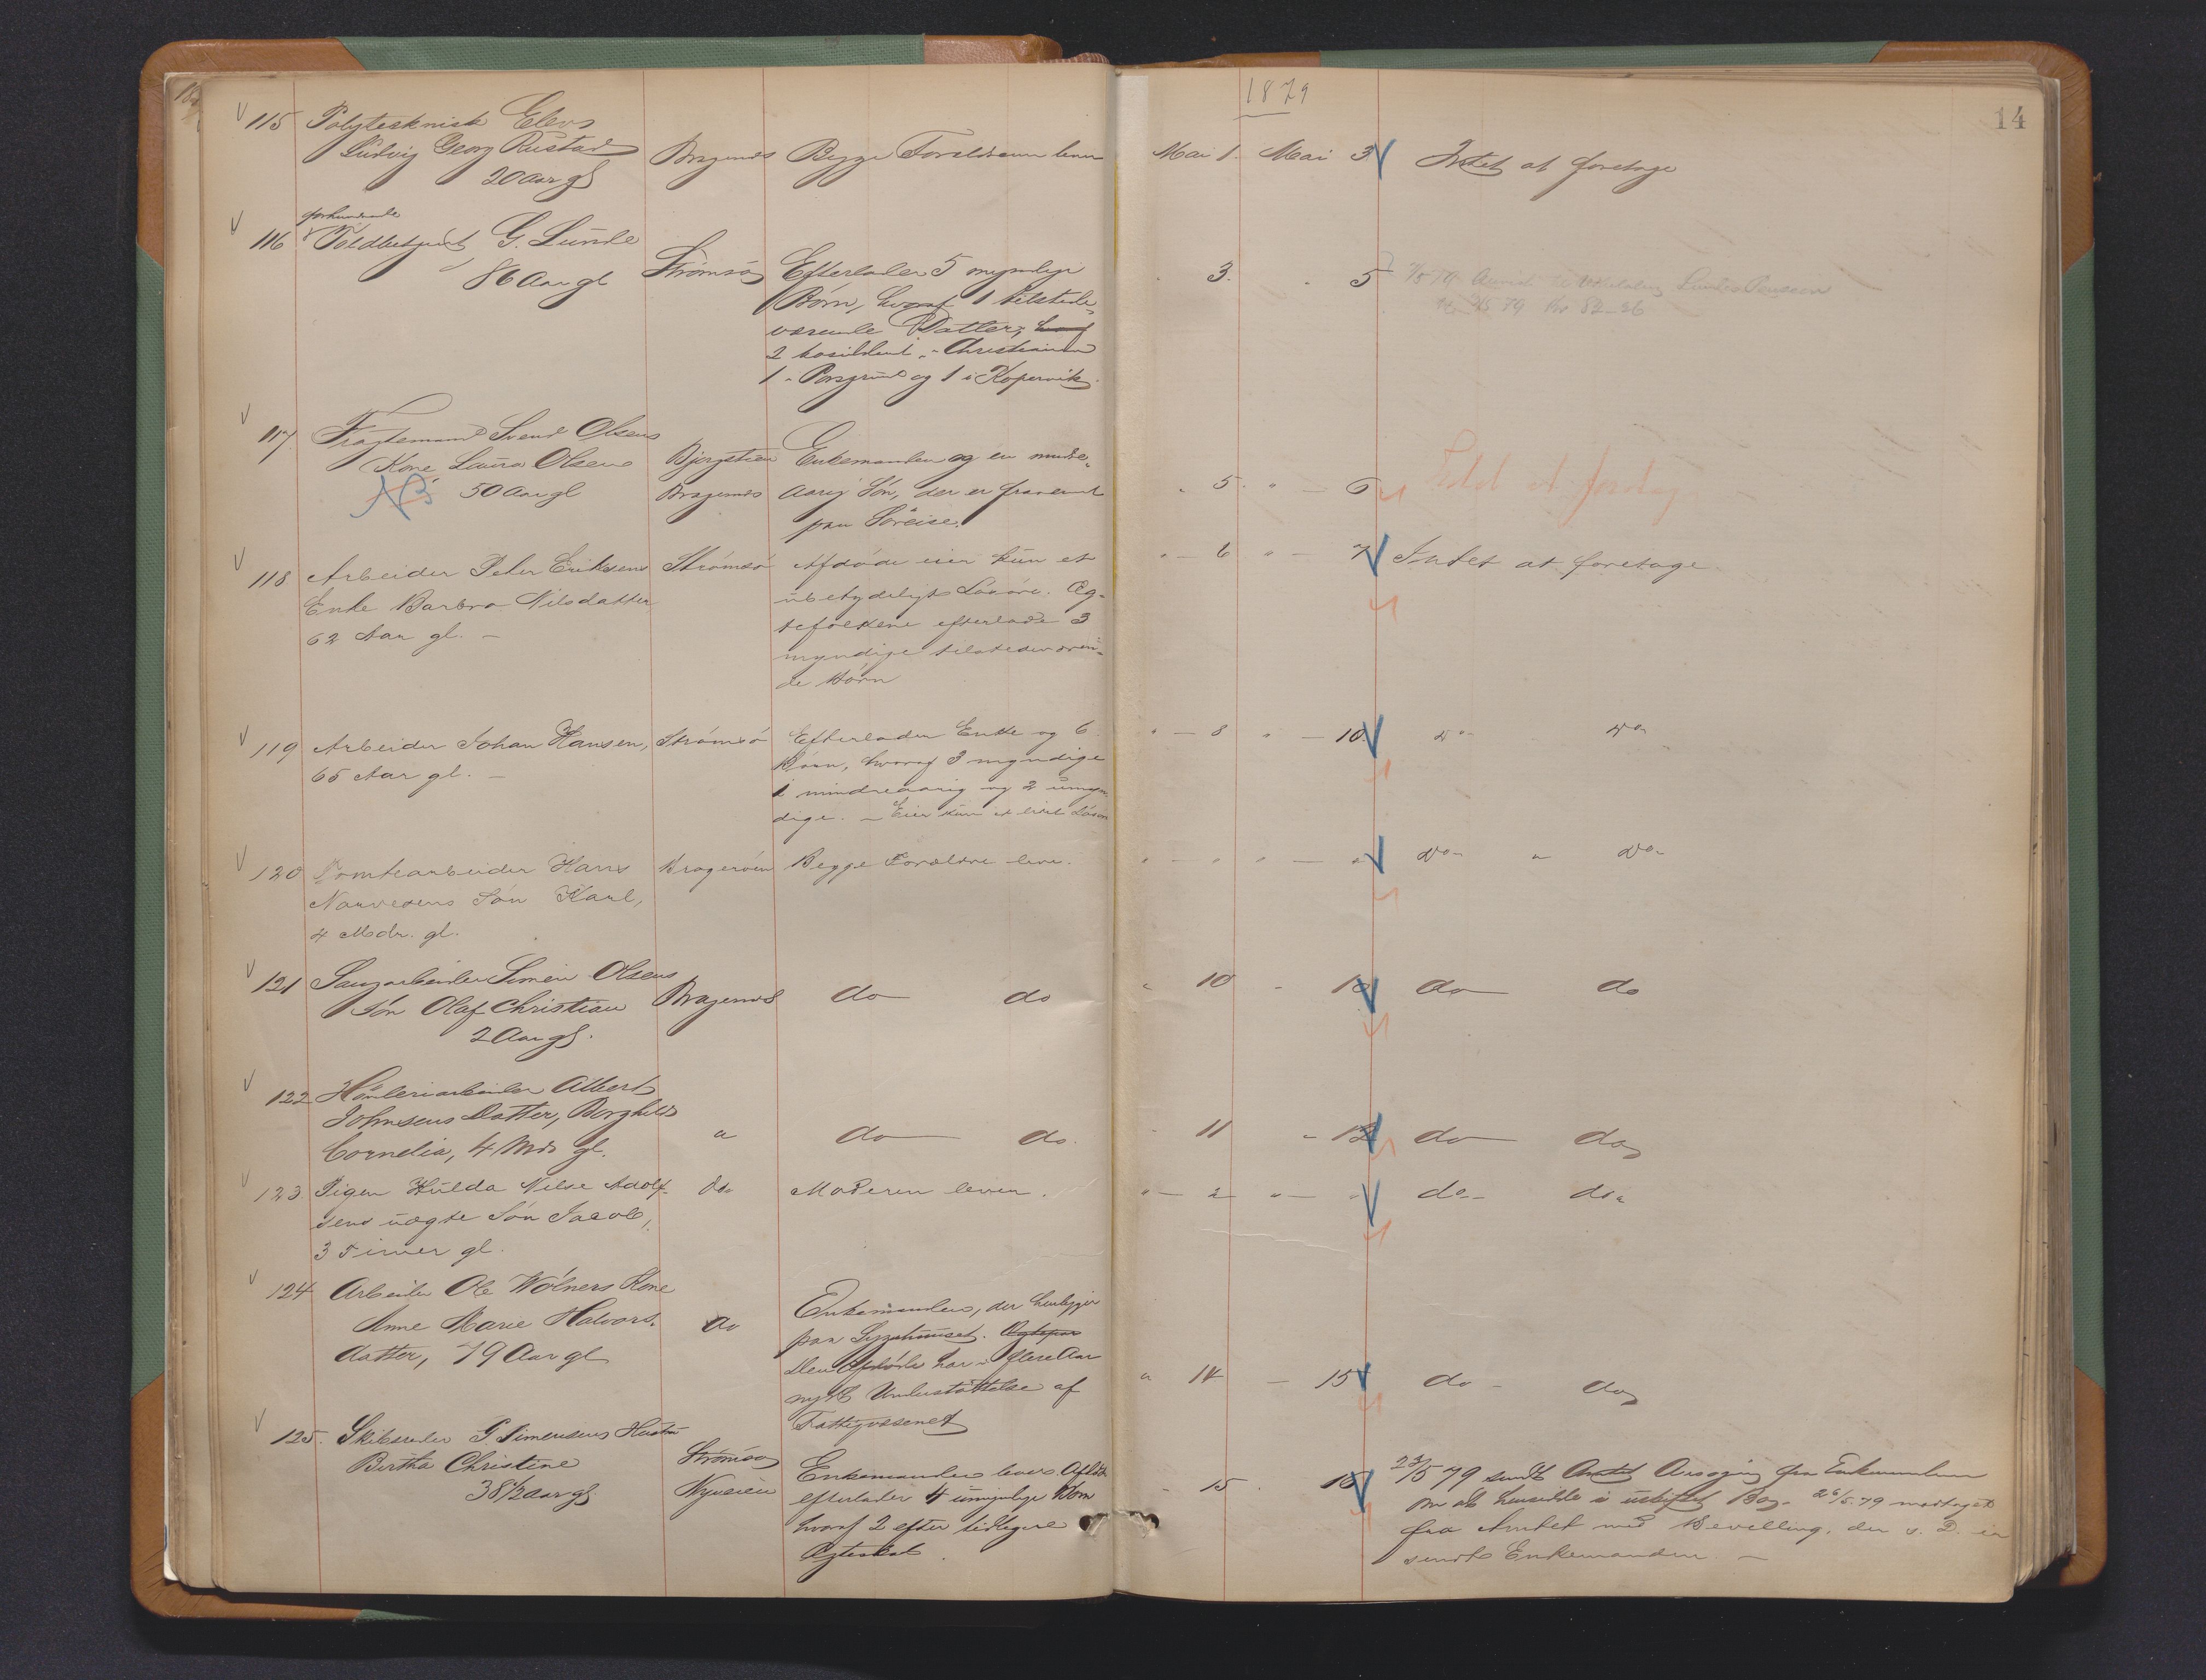 1879
14
115 Polyteknisk Elev
Ludvig Georg Rustad Bragernes Begge Forældrene lever Mai 1. Mai 3 Intet at foretage
20 Aar gl
forhenværende
116 Toldbetjent G. Lunde
86 Aar gl Strømsø Efterlader 5 myndige 3. 5
Børn, hvoraf 1 tilstede-
værende Datter,
2 bosiddend i Christiania
1 i Porsgrund og 1 i Kopervik.
117 Fragtemand Svend Olsens
Kone Laura Olsen Bjergstien Enkemanden og en mindre-
NB 50 Aar gl Bragernes aarig Søn, der er fraværende 5 6 Intet at foretag
paa Søreise.
118 Arbeider Peter Eriksens Strømsø Afdøde eier kun et " 6 " 7 Intet at foretage
Enke Barbra Nilsdatter ubetydeligt Løsøre. Æg-
62 Aar gl. tefolkene efterlade 3
myndige tilstedeværen-
de Børn
119 Arbeider Johan Hansen, Strømsø Efterlader Enke og 6 " 8 " 10 do do
65 Aar gl. Børn, hvoraf 3 myndige
1 mindreaarig og 2 umyn-
dige. Eier kun et lidet Løsøre
120 Tomtearbeider Hans Bragerøen Begge Forældre lever. " " " " do do
Narvesens Søn Karl,
4 Mdr. gl.
121 Saugarbeider Simen Olsens
Søn Olaf Christian Bragernes do do " 10 " do do
2 Aar gl.
122 Høvleriarbeider Albert
Johnsens Datter, Borghild
Cornelia, 4 Mdr gl. " do do. 11 12 do do
123. Pigen Hulda Nilse Adolf- do Moderen lever. " " " " do do
sens uægte Søn Jacob,
3 Timer gl.
124 Arbeider Ole Wølners Kone
Anne Marie Halvors- do Enkemanden, der henligger
datter, 79 Aar gl paa Sygehuset.
Den Afdøde har i flere Aar
nydt Understøttelse af " 14 15 do do
Fattigvæsenet
125. Skibsreder P. Simensens Hustru
Bertha Christine Strømsø Enkemanden lever. Afdøde 23/5 79 sendt Amtet Ansøgning fra Enkemanden
38 1/2 aar gl. Nyveien efterlader 4 umyndige Børn 15 16 om at hensidde i uskiftet Bo. 26/5 79 modtaget
hvoraf 2 efter tidligere fra Amtet med Bevilling, der s. D. er
Ægteskab. sendt Enkemanden.